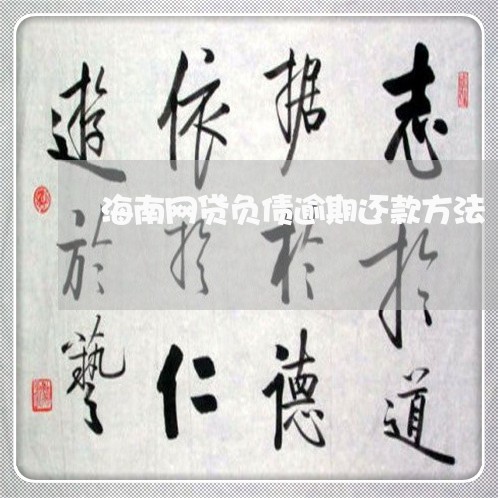 志於道
据於德
依於仁
遊於藝
海南网贷负债逾期还款方法